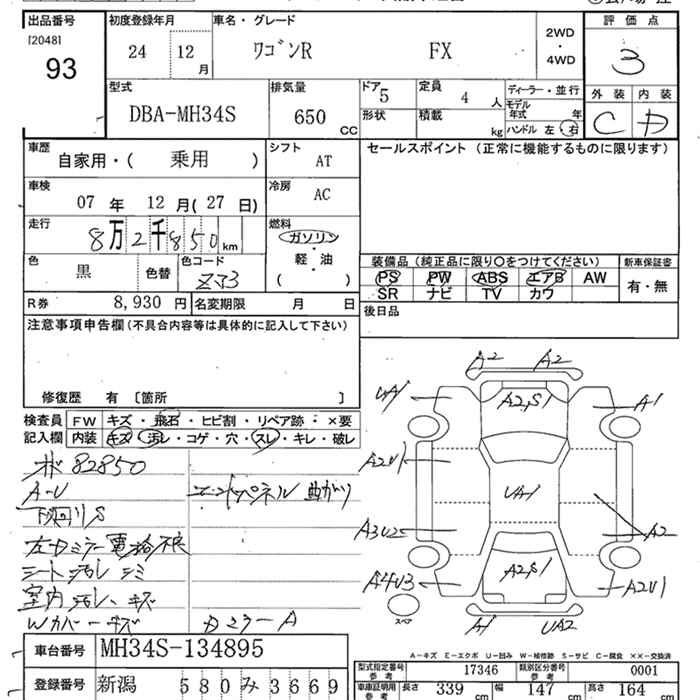 出品番号
[2048]
93
初度登録年月
24 12月
車名・グレード
ワゴンR FX
2WD
・
4WD
評価点
3
外装 内装
C D
型式
DBA-MH34S
排気量
650 CC
ドア 5
形状
定員 4 人
積載 kg
ディーラー・並行
モデル年式 年
ハンドル 左・右
車歴
自家用・( 乗用 )
シフト AT
車検
07 年 12 月( 27 日)
冷房 AC
走行
8万2千850 km
燃料
ガソリン
軽・油
( )
色 黒 色替
色コード ZJ3
R券 8,930 円
名変期限 月 日
セールスポイント (正常に機能するものに限ります)
装備品 (純正品に限り○をつけてください)
PS PW ABS エアB AW
SR ナビ TV カワ
新車保証書
有・無
後日品
注意事項申告欄 (不具合内容等は具体的に記入して下さい)
修復歴 有 〔箇所 〕
検査員記入欄
FW キズ・飛石・ヒビ割・リペア跡・×要
内装 キズ・汚レ・コゲ・穴・スレ・キレ・破レ
82850
A-U
下廻りS
エンドパネル 曲がり
左Dミラー電格不良
シート汚レ シミ
室内汚レ・キズ
Wカバーキズ
DミラーA
A2 A2
UA1 A2,S1 A1
A2U1 UA1
A3U2 A2
A4U3 A2,S1 A2U1
スペア
A1 UA2
A-キズ E-エクボ U-凹み W-補修跡 S-サビ C-腐食 ××-交換済
車台番号 MH34S-134895
登録番号 新潟 580 み 3669
型式指定番号 参考 17346
類別区分番号 参考 0001
車庫証明用 参考
長さ 339 cm 幅 147 cm 高さ 164 cm